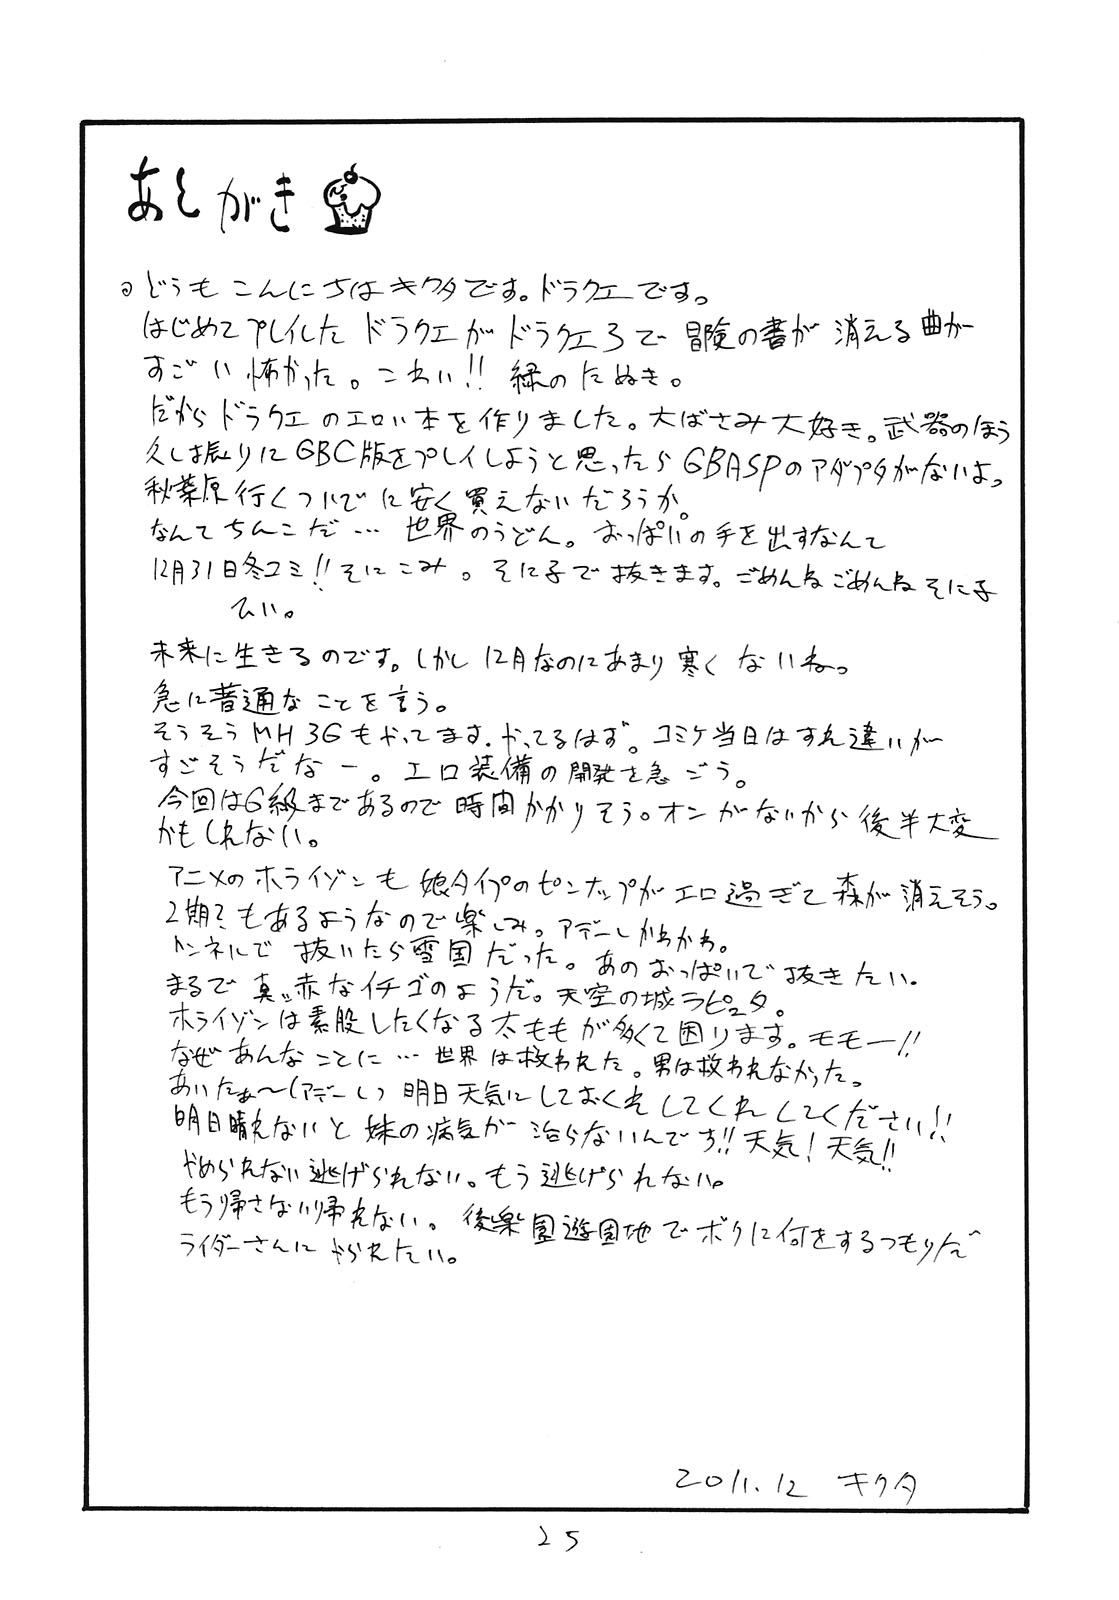 あとがき
どうもこんにちはキクタです。ドラクエです。
はじめてプレイしたドラクエがドラクエ3で冒険の書が消える曲が
すごい怖かった。こわい!!緑のたぬき。
だからドラクエのエロい本を作りました。大ばさみ大好き。武器のほう
久し振りにGBC版をプレイしようと思ったらGBASPのアダプタがないよっ
秋葉原行くついでに安く買えないだろうか。
なんてちんこだ…世界のうどん。おっぱいの手を出すなんて
12月31日冬コミ!!そにこみ。そに子で抜きます。ごめんねごめんねそに子
ひい。
未来に生きるのです。しかし12月なのにあまり寒くないねっ
急に普通なことを言う。
そうそうMH3Gもやってます。やってるはず。コミケ当日はすれ違いが
すごそうだなー。エロ装備の開発を急ごう。
今回はG級まであるので時間かかりそう。オンがないから後半大変
かもしれない。
アニメのホライゾンも娘タイプのピンナップがエロ過ぎて森が消えそう。
2期?もあるようなので楽しみ。アデーレかわかわ。
トンネルで抜いたら雪国だった。あのおっぱいで抜きたい。
まるで真っ赤なイチゴのようだ。天空の城ラピュタ。
ホライゾンは素股したくなる太ももが多くて困ります。モモー!!
なぜあんなことに…世界は救われた。男は救われなかった。
あいたぁ〜(アデーレ)明日天気にしておくれしてくれしてください!!
明日晴れないと妹の病気が治らないんです!!天気!天気!!
やめられない逃げられない。もう逃げられない。
もう帰さない帰れない。後楽園遊園地でボクに何をするつもりだ
ライダーさんにやられたい。
2011.12 キクタ
25